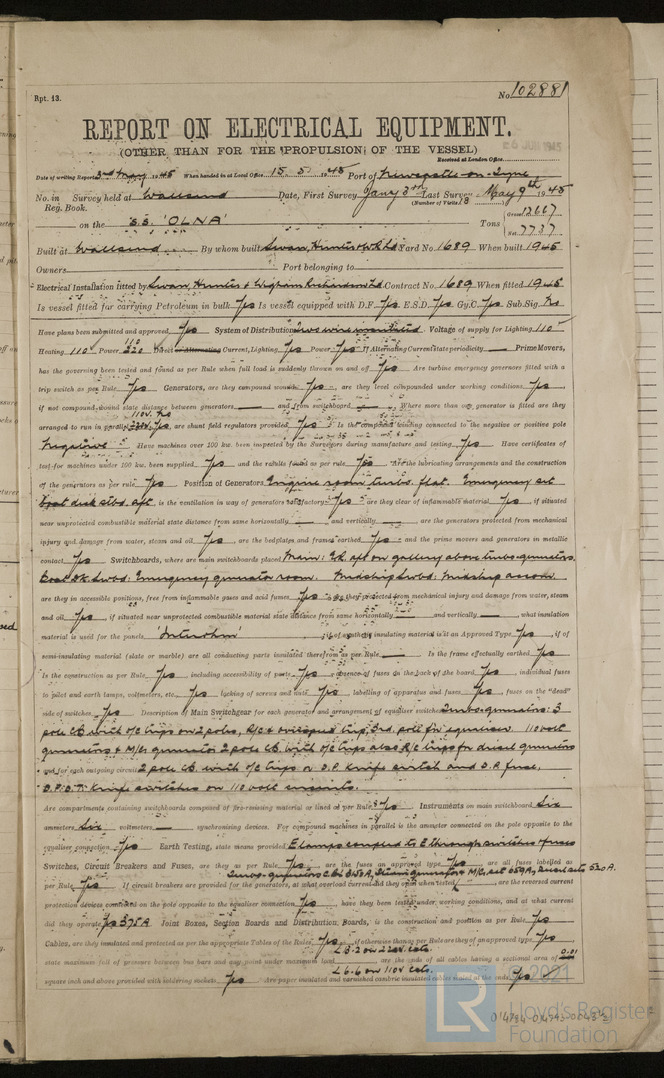 Rpt. 13.
No. 102881
REPORT ON ELECTRICAL EQUIPMENT.
(OTHER THAN FOR THE PROPULSION OF THE VESSEL)
Received at London Office
JUN 1945
Date of writing Report 3rd May 1945 When handed in at Local Office 15. 5. 1945 Port of Newcastle-on-Tyne
No. in Survey held at Wallsend Date, First Survey Jany 3rd Last Survey May 9th 1945
Reg. Book. (Number of Visits 18
on the S.S. 'OLNA' Tons Gross 12667 Net 7737
Built at Wallsend By whom built Swan, Hunter & W.R. Ld Yard No. 1689 When built 1945
Owners Port belonging to
Electrical Installation fitted by Swan, Hunter & Wigham Richardson Ld Contract No. 1689 When fitted 1945
Is vessel fitted for carrying Petroleum in bulk Yes Is vessel equipped with D.F. Yes E.S.D. Yes Gy.C. Yes Sub.Sig. No
Have plans been submitted and approved Yes System of Distribution Two wire insulated Voltage of supply for Lighting 110
Heating 110 Power 110 220 Direct or Alternating Current, Lighting Yes Power Yes If Alternating Current state periodicity Prime Movers,
has the governing been tested and found as per Rule when full load is suddenly thrown on and off Yes Are turbine emergency governors fitted with a
trip switch as per Rule Yes Generators, are they compound wound Yes, are they level compounded under working conditions Yes,
if not compound wound state distance between generators and from switchboard Where more than one generator is fitted are they
arranged to run in parallel 110v. No 220v. Yes, are shunt field regulators provided Yes Is the compound winding connected to the negative or positive pole
Negative Have machines over 100 kw. been inspected by the Surveyors during manufacture and testing Yes Have certificates of
test for machines under 100 kw. been supplied Yes and the results found as per rule Yes Are the lubricating arrangements and the construction
of the generators as per rule Yes Position of Generators Engine room turbo. flat. Emergency set
boat deck stbd. aft, is the ventilation in way of generators satisfactory Yes are they clear of inflammable material Yes, if situated
near unprotected combustible material state distance from same horizontally and vertically, are the generators protected from mechanical
injury and damage from water, steam and oil Yes, are the bedplates and frames earthed Yes and the prime movers and generators in metallic
contact Yes Switchboards, where are main switchboards placed Main: E.R. aft on gallery above turbo-generators.
Boat Dk. Swbd: Emergency generator room. Midship Swbd: Midship accom.
are they in accessible positions, free from inflammable gases and acid fumes Yes, are they protected from mechanical injury and damage from water, steam
and oil Yes, if situated near unprotected combustible material state distance from same horizontally and vertically, what insulation
material is used for the panels, if of synthetic insulating material is it an Approved Type Yes, if of
semi-insulating material (slate or marble) are all conducting parts insulated therefrom as per Rule Is the frame effectually earthed Yes
Is the construction as per Rule Yes, including accessibility of parts Yes, absence of fuses on the back of the board Yes, individual fuses
to pilot and earth lamps, voltmeters, etc. Yes locking of screws and nuts Yes, labelling of apparatus and fuses Yes, fuses on the "dead"
side of switches Yes Description of Main Switchgear for each generator and arrangement of equaliser switches Turbo-generators: 3
pole CB. with O/C trips on 2 poles, R/C & trip, 3rd. pole for equaliser. 110 volt
generators & M/G. generator 2 pole CB. with O/C trips also R/C trips for diesel generators
and for each outgoing circuit 2 pole CB. with O/C trips or D.P. Knife switch and D.P. fuse,
D.P.D.T. Knife switches on 110 volt
Are compartments containing switchboards composed of fire-resisting material or lined as per Rule Yes Instruments on main switchboard Six
ammeters Six voltmeters synchronising devices. For compound machines in parallel is the ammeter connected on the pole opposite to the
equaliser connection Yes Earth Testing, state means provided E lamps coupled to E through switches & fuses
Switches, Circuit Breakers and Fuses, are they as per Rule Yes, are the fuses an approved type Yes, are all fuses labelled as
per Rule Yes If circuit breakers are provided for the generators, at what overload current did they open when tested, are the reversed current
protection devices connected on the pole opposite to the equaliser connection Yes, have they been tested under working conditions, and at what current
did they operate Yes 375A Joint Boxes, Section Boards and Distribution Boards, is the construction and position as per Rule Yes
Cables, are they insulated and protected as per the appropriate Tables of the Rules Yes, if otherwise than as per Rule are they of an approved type Yes
state maximum fall of pressure between bus bars and any point under maximum load L 3.2 on 220v. ccts. L 6.6 on 110v ccts., are the ends of all cables having a sectional area of 0.01
square inch and above provided with soldering sockets Yes Are paper insulated and varnished cambric insulated cables sealed at the ends Yes
LR
© 2021
Lloyd's Register
Foundation